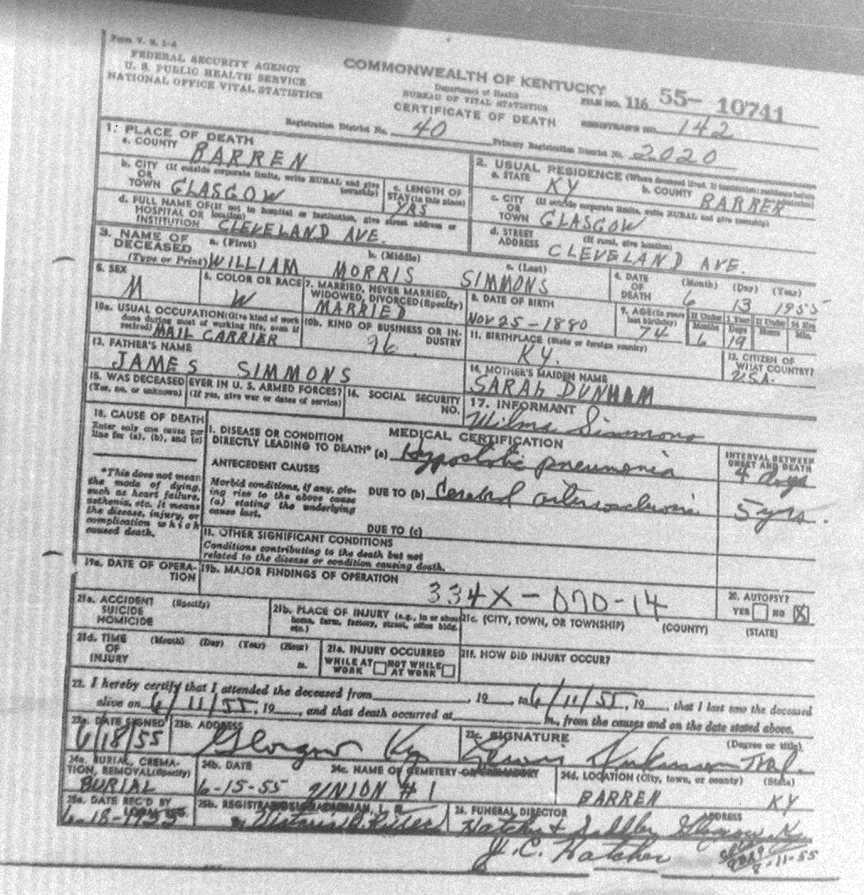 Form V. S. 1-A
FEDERAL SECURITY AGENCY
U. S. PUBLIC HEALTH SERVICE
NATIONAL OFFICE VITAL STATISTICS
COMMONWEALTH OF KENTUCKY
Department of Health
BUREAU OF VITAL STATISTICS
CERTIFICATE OF DEATH
FILE NO. 116 55- 10741
REGISTRAR'S NO. 142
Registration District No. 40 Primary Registration District No. 2020
1. PLACE OF DEATH
a. COUNTY BARREN
b. CITY (If outside corporate limits, write RURAL and give township)
OR
TOWN GLASGOW
c. LENGTH OF STAY (in this place)
YRS
d. FULL NAME OF (If not in hospital or institution, give street address or location)
HOSPITAL OR
INSTITUTION CLEVELAND AVE.
2. USUAL RESIDENCE (Where deceased lived. If institution: residence before admission)
a. STATE KY
b. COUNTY BARREN
c. CITY (If outside corporate limits, write RURAL and give township)
OR
TOWN GLASGOW
d. STREET (If rural, give location)
ADDRESS CLEVELAND AVE.
3. NAME OF DECEASED
(Type or Print)
a. (First) WILLIAM
b. (Middle) MORRIS
c. (Last) SIMMONS
4. DATE OF DEATH (Month) (Day) (Year)
6 13 1955
5. SEX
M
6. COLOR OR RACE
W
7. MARRIED, NEVER MARRIED, WIDOWED, DIVORCED (Specify)
MARRIED
8. DATE OF BIRTH
NOV 25-1880
9. AGE (In years last birthday)
74
If Under 1 Year
Months 6
Days 19
If Under 24 Hrs.
Hours
Min.
10a. USUAL OCCUPATION (Give kind of work done during most of working life, even if retired)
MAIL CARRIER
10b. KIND OF BUSINESS OR INDUSTRY
11. BIRTHPLACE (State or foreign country)
KY.
12. CITIZEN OF WHAT COUNTRY?
U.S.A.
13. FATHER'S NAME
JAMES SIMMONS
14. MOTHER'S MAIDEN NAME
SARAH DUNHAM
15. WAS DECEASED EVER IN U. S. ARMED FORCES?
(Yes, no, or unknown) (If yes, give war or dates of service)
16. SOCIAL SECURITY NO.
17. INFORMANT
Wilma Simmons
18. CAUSE OF DEATH
Enter only one cause per line for (a), (b), and (c)
*This does not mean the mode of dying, such as heart failure, asthenia, etc. It means the disease, injury, or complication which caused death.
MEDICAL CERTIFICATION
I. DISEASE OR CONDITION
DIRECTLY LEADING TO DEATH* (a) Hypostatic pneumonia
INTERVAL BETWEEN ONSET AND DEATH
4 days
ANTECEDENT CAUSES
Morbid conditions, if any, giving rise to the above cause (a) stating the underlying cause last.
DUE TO (b) Cerebral arteriosclerosis
5 yrs.
DUE TO (c)
II. OTHER SIGNIFICANT CONDITIONS
Conditions contributing to the death but not related to the disease or condition causing death.
19a. DATE OF OPERATION
19b. MAJOR FINDINGS OF OPERATION
334X-070-14
20. AUTOPSY?
YES NO X
21a. ACCIDENT SUICIDE HOMICIDE (Specify)
21b. PLACE OF INJURY (e.g., in or about home, farm, factory, street, office bldg. etc.)
21c. (CITY, TOWN, OR TOWNSHIP) (COUNTY) (STATE)
21d. TIME OF INJURY (Month) (Day) (Year) (Hour) m.
21e. INJURY OCCURRED
WHILE AT WORK NOT WHILE AT WORK
21f. HOW DID INJURY OCCUR?
22. I hereby certify that I attended the deceased from , 19 to 6/11/55, 19 , that I last saw the deceased
alive on 6/11/55, 19 , and that death occurred at m., from the causes and on the date stated above.
23a. DATE SIGNED
6/18/55
23b. ADDRESS
Glasgow Ky
23c. SIGNATURE (Degree or title)
24a. BURIAL, CREMATION, REMOVAL (Specify)
BURIAL
24b. DATE
6-15-55
24c. NAME OF CEMETERY OR CREMATORY
UNION #1
24d. LOCATION (City, town, or county) (State)
BARREN KY
25a. DATE REC'D BY LOCAL REG.
25b. REGISTRAR'S SIGNATURE
26. FUNERAL DIRECTOR ADDRESS
Hatcher & Saddler Glasgow Ky
J. C. Hatcher